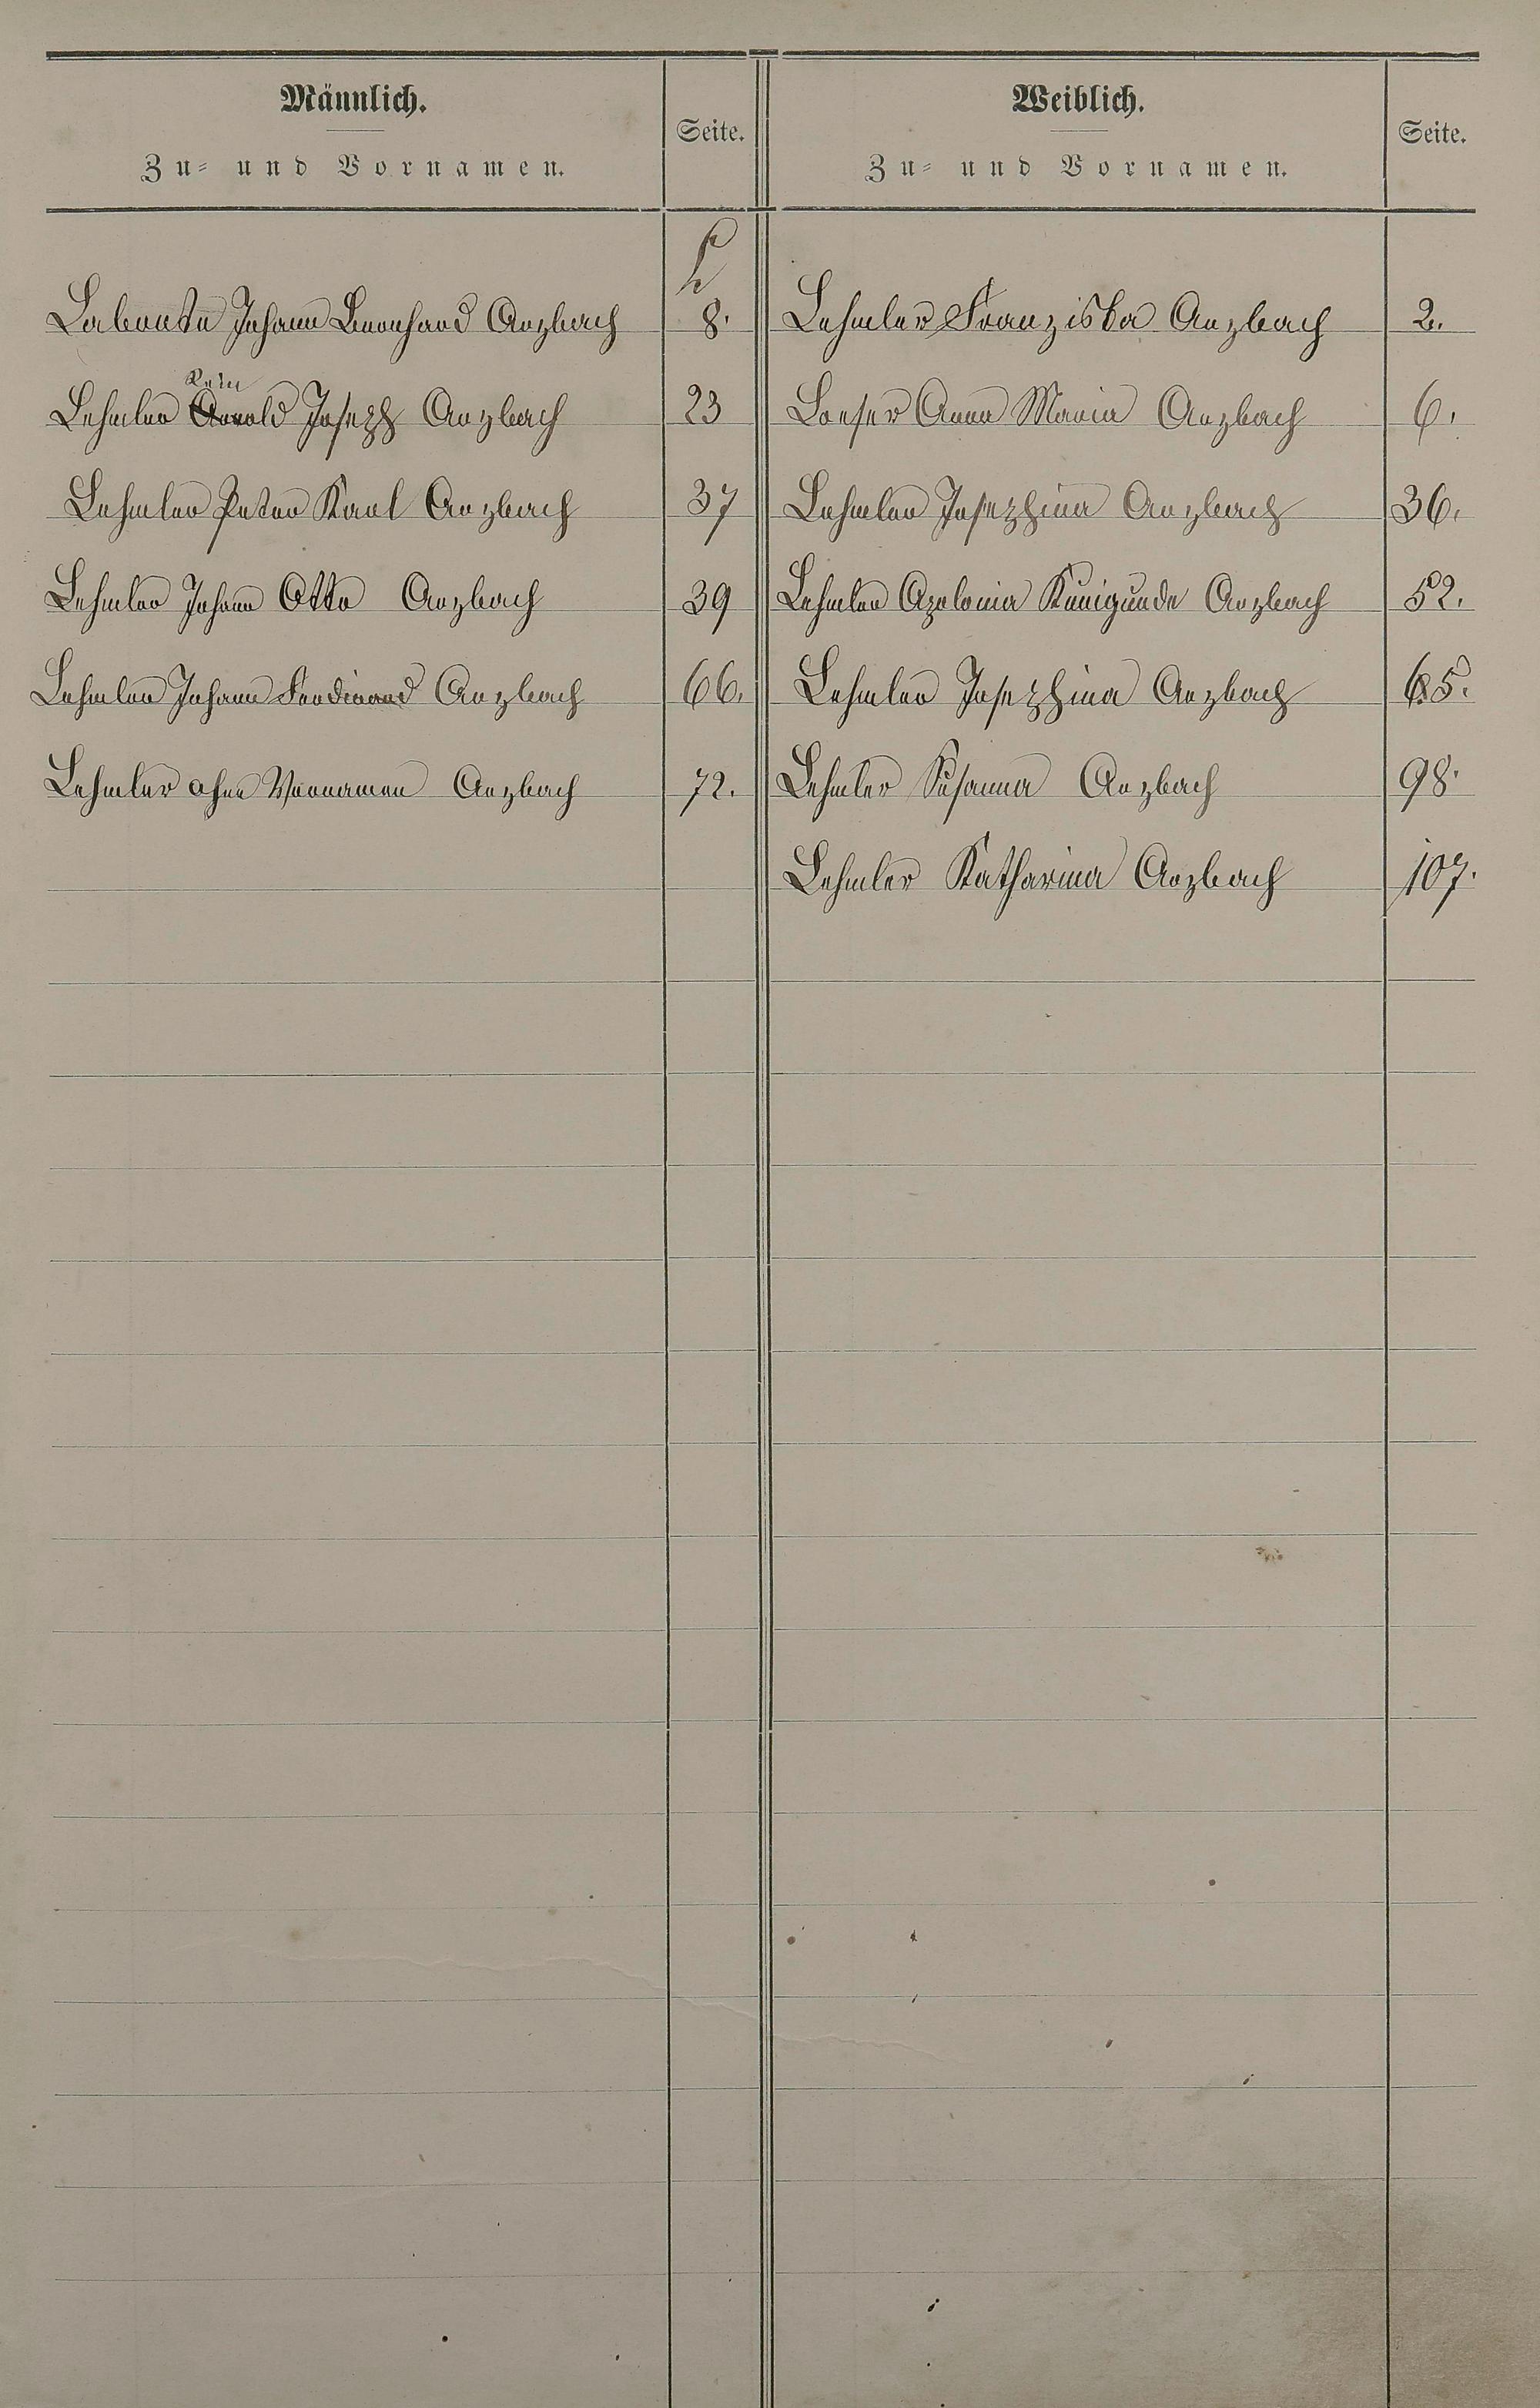 Männlich.
Zu- und Vornamen.
Seite.
Weiblich.
Zu- und Vornamen.
Seite.
L
Labonte Johann Bernhard Arzbach 8.
Lehmler Franziska Arzbach 2.
Rein
Lehmler Arnold Joseph Arzbach 23
Loeser Anna Maria Arzbach 6.
Lehmler Peter Karl Arzbach 37
Lehmler Josephina Arzbach 36.
Lehmler Johann Otto Arzbach 39
Lehmler Apolonia Kunigunde Arzbach 52.
Lehmler Johann Ferdinand Arzbach 66.
Lehmler Josephina Arzbach 65.
Lehmler ohne Vornamen Arzbach 72.
Lehmler Susanna Arzbach 98.
Lehmler Katharina Arzbach 107.